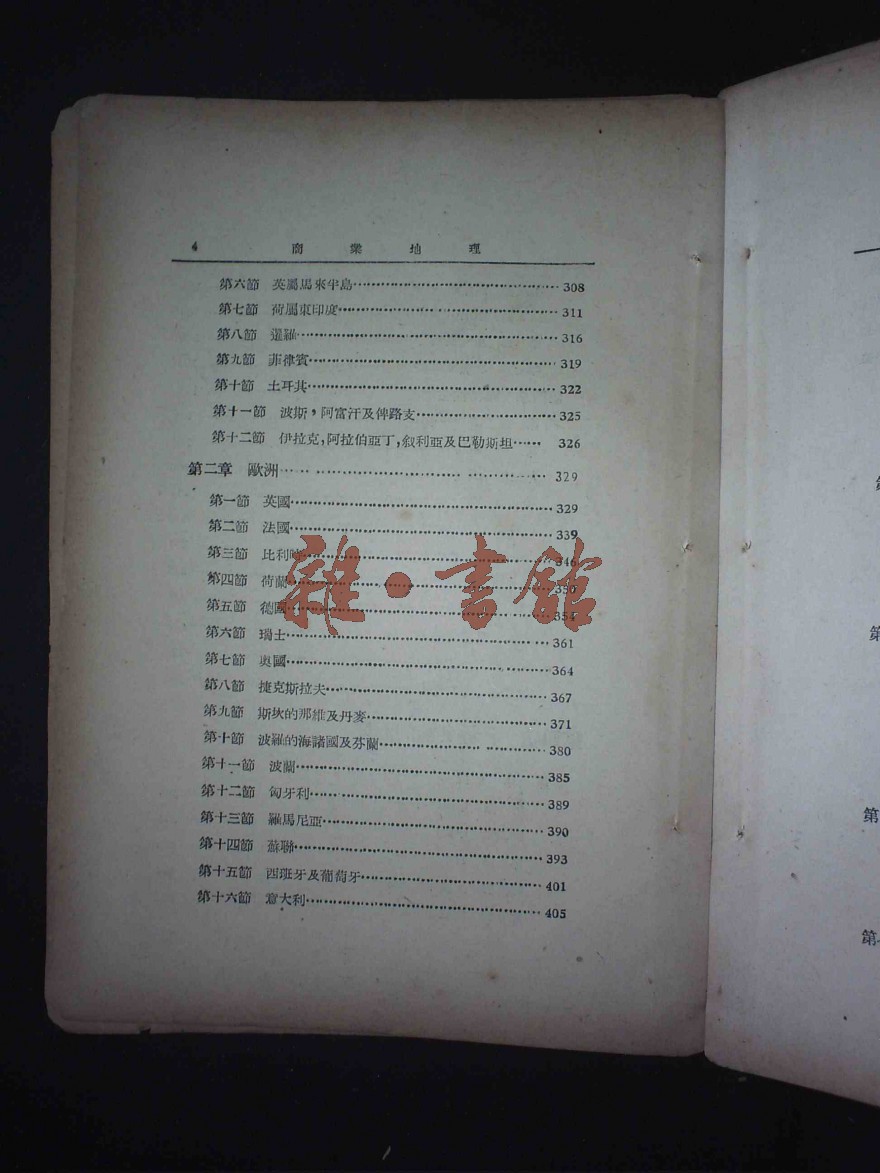 4 商業地理
第六節 英屬馬來半島…………308
第七節 荷屬東印度…………311
第八節 暹羅…………316
第九節 菲律賓…………319
第十節 土耳其…………322
第十一節 波斯，阿富汗及俾路支…………325
第十二節 伊拉克，阿拉伯亞丁，叙利亞及巴勒斯坦…… 326
第二章 歐洲…………329
第一節 英國…………329
第二節 法國…………339
第三節 比利時…………346
第四節 荷蘭…………350
第五節 德國…………354
第六節 瑞士…………361
第七節 奥國…………364
第八節 捷克斯拉夫…………367
第九節 斯坎的那維及丹麥…………371
第十節 波羅的海諸國及芬蘭…………380
第十一節 波蘭…………385
第十二節 匈牙利…………389
第十三節 羅馬尼亞…………390
第十四節 蘇聯…………393
第十五節 西班牙及葡萄牙…………401
第十六節 意大利…………405
雜·書館
第
第
第
第